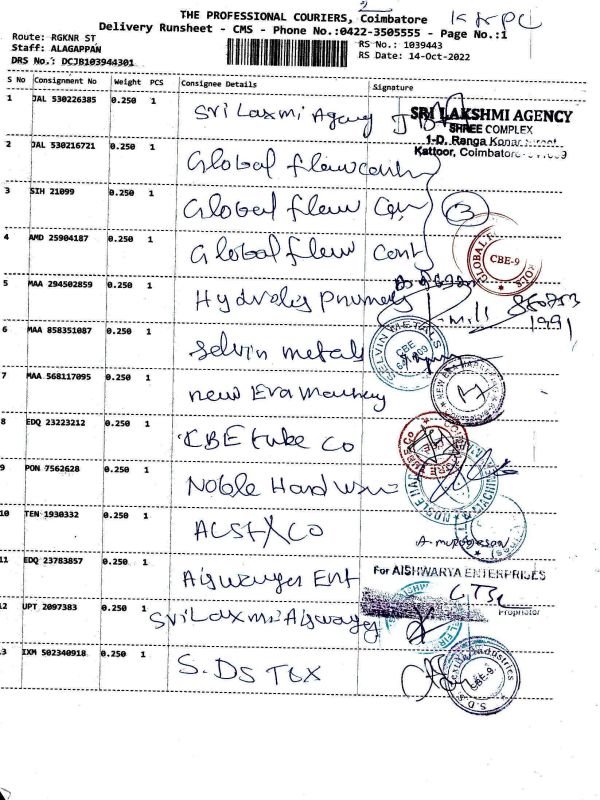 THE PROFESSIONAL COURIERS, Coimbatore
Delivery Runsheet - CMS - Phone No.:0422-3505555 - Page No.:1
Route: RGKNR ST
RS No.: 1039443
Staff: ALAGAPPAN
RS Date: 14-Oct-2022
DRS No.: DCJB103944301
S No Consignment No Weight PCS Consignee Details Signature
1 JAL 530226385 0.250 1 Sri Laxmi Agency
SRI LAKSHMI AGENCY
SHREE COMPLEX
1-D, Ranga Konar Street
Kattoor, Coimbatore
2 JAL 530216721 0.250 1 Global flow
3 SIH 21099 0.250 1 Global flow 3
4 AMD 25904187 0.250 1 Global flow Cont
CBE-9
5 MAA 294502859 0.250 1
1991
6 MAA 858351087 0.250 1 Selvin metals
SELVIN METALS
CBE
7 MAA 568117095 0.250 1 new Era
NEW ERA
8 EDQ 23223212 0.250 1 CBE tube Co
9 PON 7562628 0.250 1 Noble Hardware
10 TEN 1930332 0.250 1
11 EDQ 23783857 0.250 1 Ent
For AISHWARYA ENTERPRISES
Proprietor
12 UPT 2097383 0.250 1 Sri Laxmi
13 IXM 502340918 0.250 1 S.DS Tex
S.D.S. Industries
CBE-9